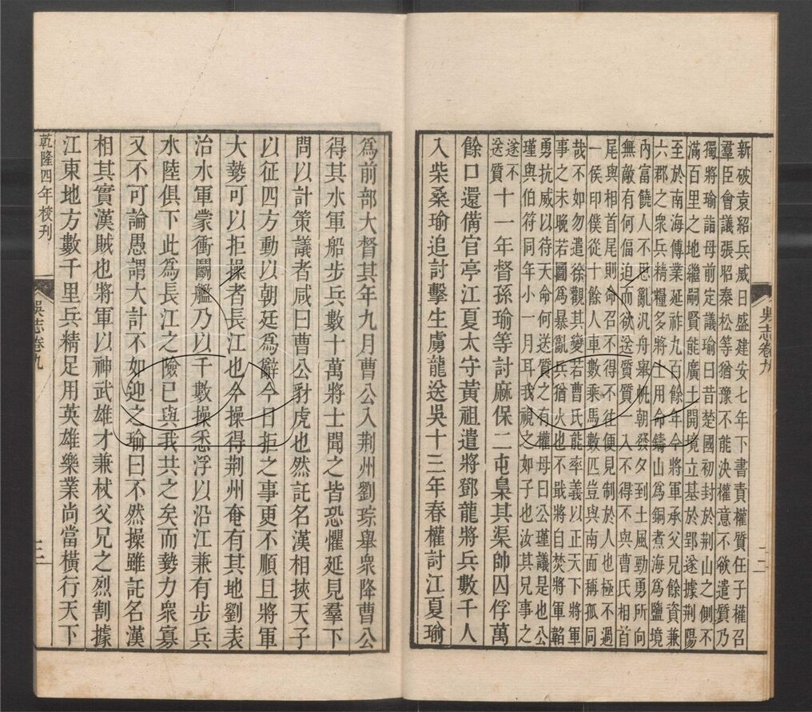 新破袁紹兵威日盛建安七年下書責權質任子權召
羣臣會議張昭秦松等猶豫不能決權意不欲遣質乃
獨將瑜詣母前定議瑜曰昔楚國初封於荆山之側不
滿百里之地繼嗣賢能廣土開境立基於郢遂據荆陽
至於南海傳業延祚九百餘年今將軍承父兄餘資兼
六郡之衆兵精糧多將士用命鑄山爲銅煮海爲鹽境
內富饒人不思亂汎舟舉帆朝發夕到土風勁勇所向
無敵有何偪迫而欲送質質一入不得不與曹氏相首
尾與相首尾則命召不得不往便見制於人也極不過
一侯印僕從十餘人車數乘馬數匹豈與南面稱孤同
哉不如勿遣徐觀其變若曹氏能率義以正天下將軍
事之未晚若圖爲暴亂兵猶火也不戢將自焚將軍韜
勇抗威以待天命何送質之有權母曰公瑾議是也公
瑾與伯符同年小一月耳我視之如子也汝其兄事之
遂不送質
十一年督孫瑜等討麻保二屯梟其渠帥囚俘萬
餘口還備官亭江夏太守黃祖遣將鄧龍將兵數千人
入柴桑瑜追討擊生虜龍送吳十三年春權討江夏瑜
吳志卷九
二
爲前部大督其年九月曹公入荆州劉琮舉衆降曹公
得其水軍船步兵數十萬將士聞之皆恐懼延見羣下
問以計策議者咸曰曹公豺虎也然託名漢相挾天子
以征四方動以朝廷爲辭今日拒之事更不順且將軍
大勢可以拒操者長江也今操得荆州奄有其地劉表
治水軍蒙衝鬭艦乃以千數操悉浮以沿江兼有步兵
水陸俱下此爲長江之險已與我共之矣而勢力衆寡
又不可論愚謂大計不如迎之瑜曰不然操雖託名漢
相其實漢賊也將軍以神武雄才兼杖父兄之烈割據
江東地方數千里兵精足用英雄樂業尚當橫行天下
乾隆四年校刊
吳志卷九
三